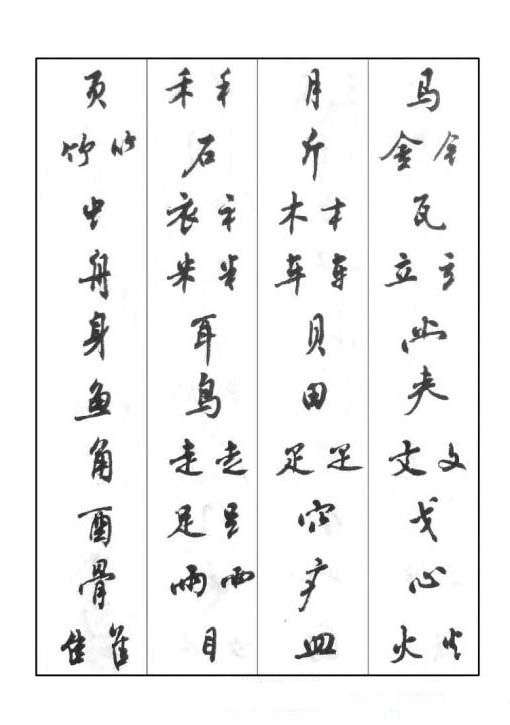 马 金 金 瓦 立 立 文 文 戈 心 火 火
月 斤 木 木 车 车 贝 田 足 足 穴 疒 皿
禾 禾 石 衣 衤 米 米 耳 鸟 走 走 足 𧾷 雨 雨 目
页 竹 竹 虫 舟 身 鱼 角 酉 骨 隹 隹